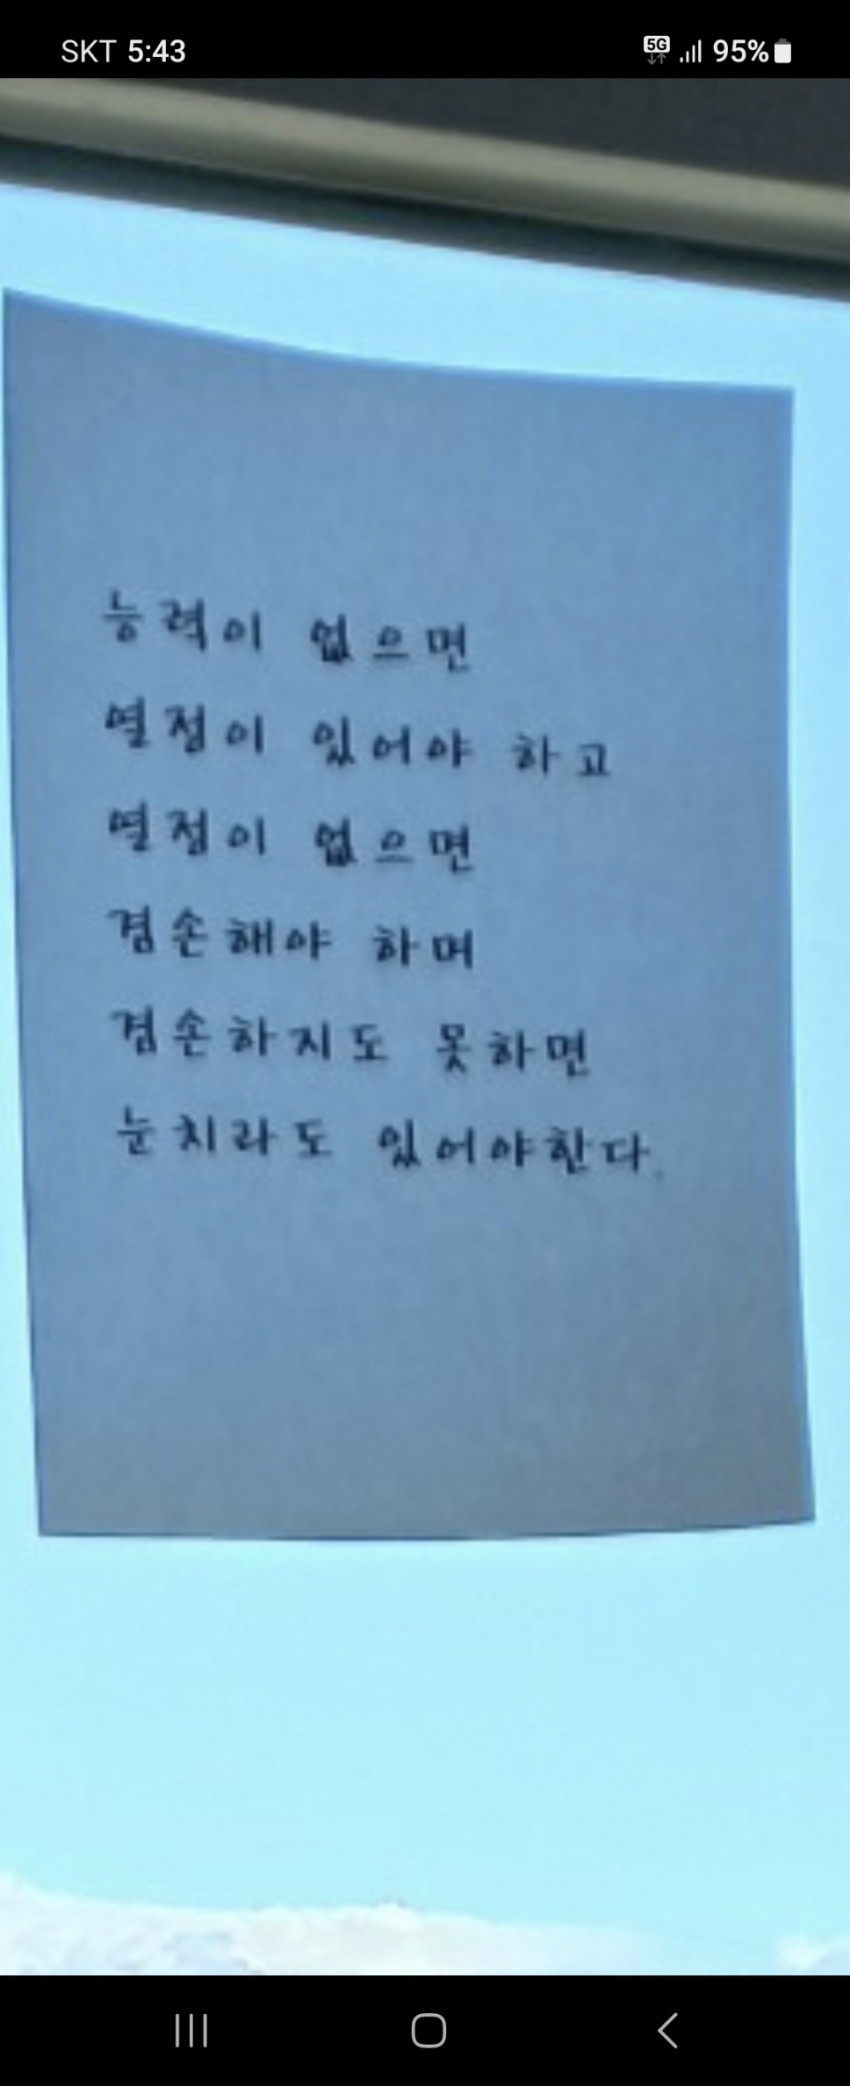 SKT 5:43
5G 95%
능력이 없으면
열정이 있어야 하고
열정이 없으면
겸손해야 하며
겸손하지도 못하면
눈치라도 있어야한다.